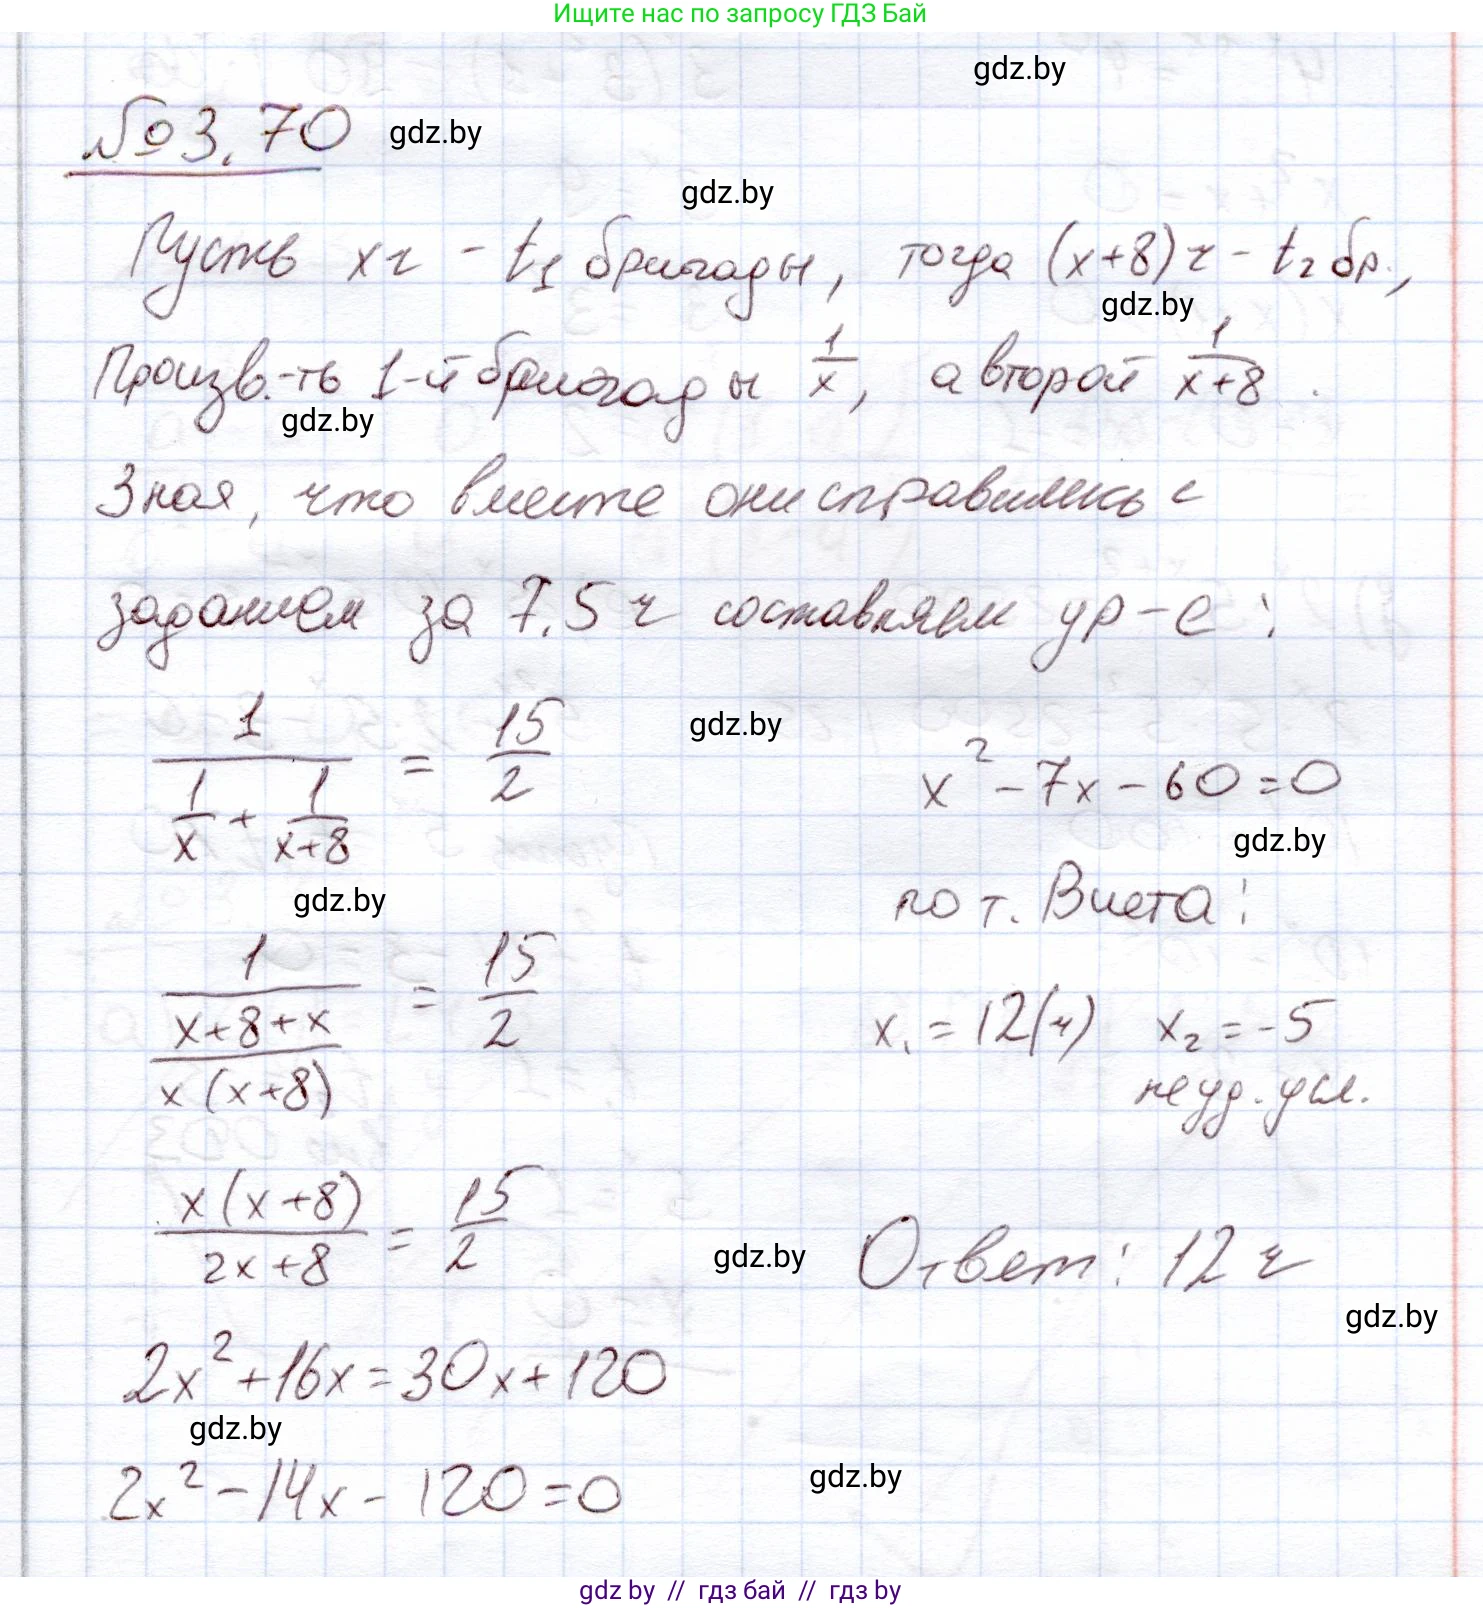 Ищите нас по запросу ГДЗ Бай
gdz.by
№3.70 gdz.by
gdz.by
Пусть x ч - t₁ бригады, тогда (x+8) ч - t₂ бр.,
gdz.by
Произв.-ть 1-й бригады 1/x, а второй 1/(x+8).
gdz.by
Зная, что вместе они справились с
заданием за 7.5 ч составляем ур-е:
1/(1/x + 1/(x+8)) = 15/2
gdz.by
gdz.by
1/((x+8+x)/(x(x+8))) = 15/2
x(x+8)/(2x+8) = 15/2
2x² + 16x = 30x + 120
gdz.by
2x² - 14x - 120 = 0
x² - 7x - 60 = 0
gdz.by
по т. Виета:
x₁ = 12(ч) x₂ = -5
не уд. усл.
gdz.by
Ответ: 12 ч
gdz.by
gdz.by
gdz by // гдз бай // гдз by